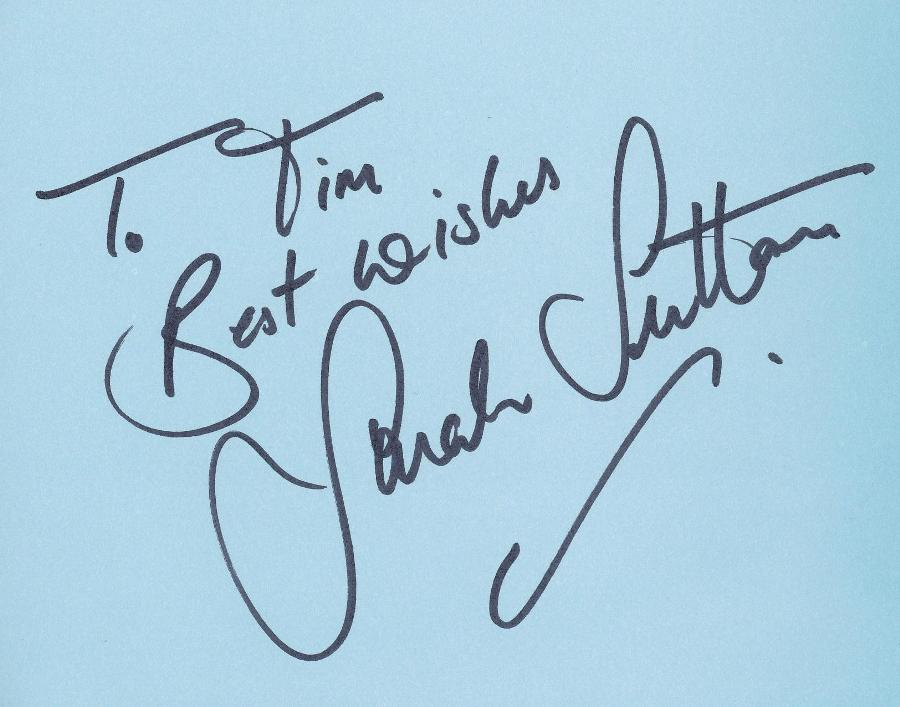 To Tim
Best Wishes
Sarah Sutton